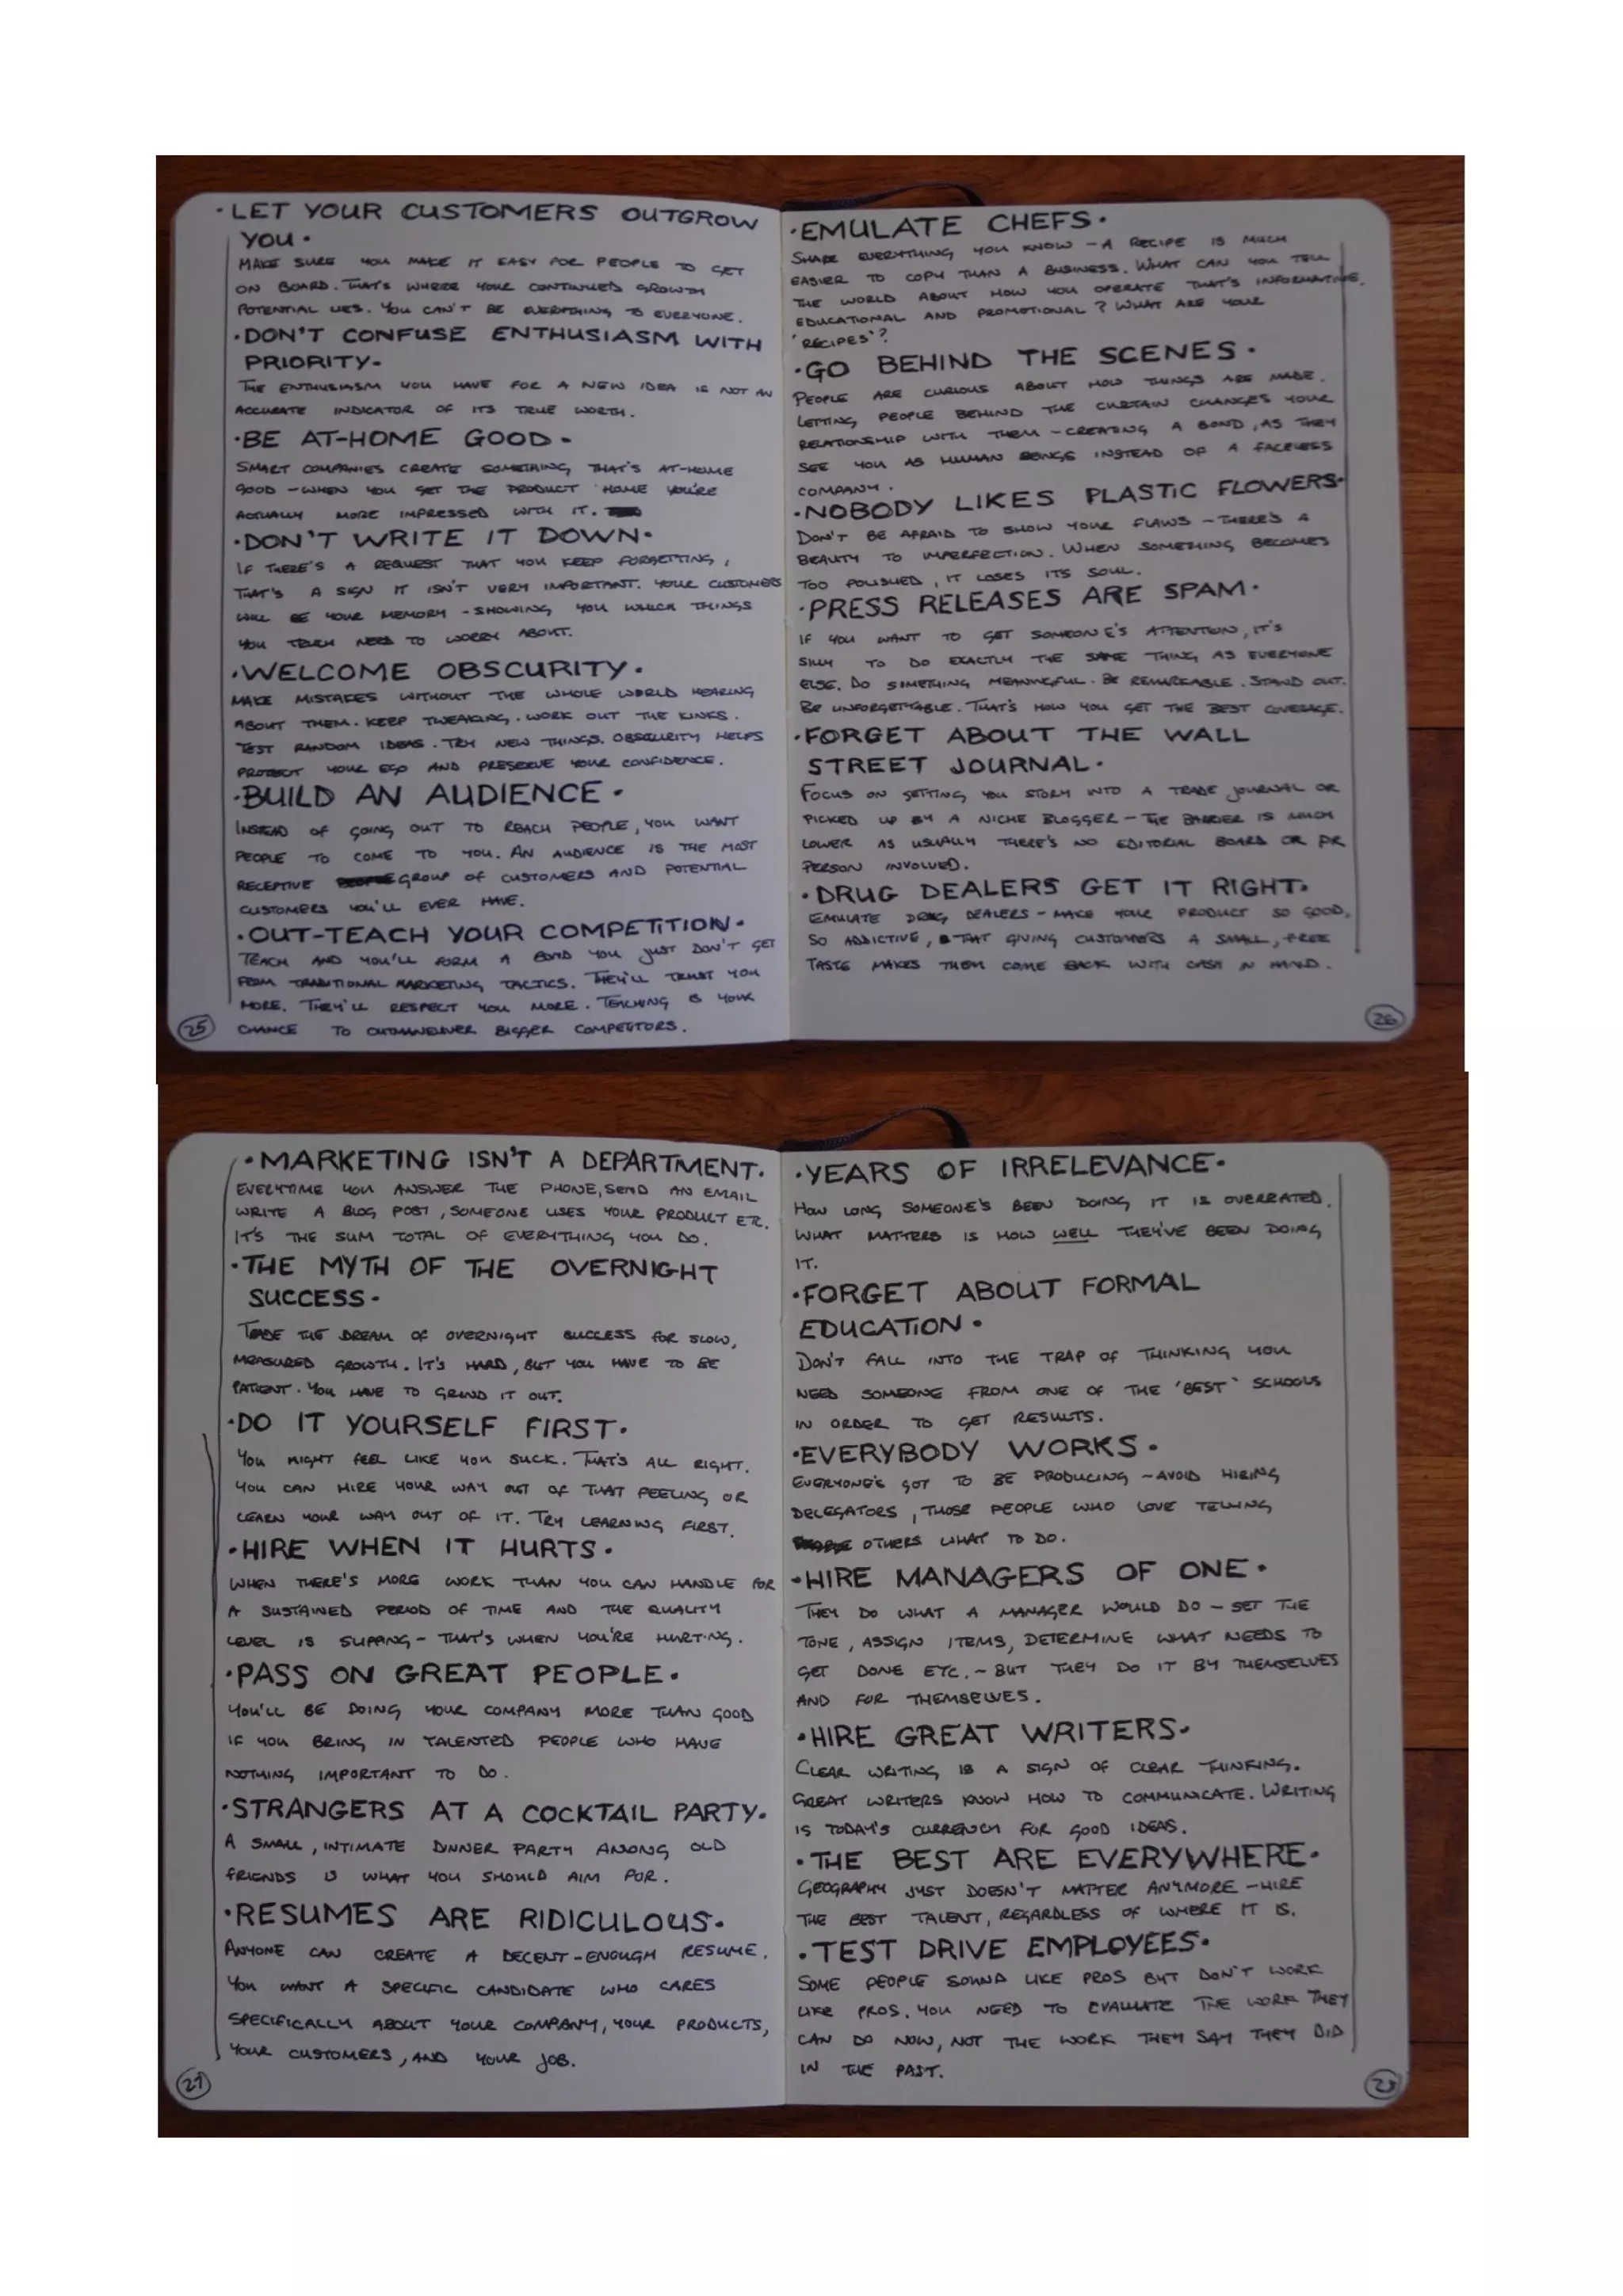 · LET YOUR CUSTOMERS OUTGROW
YOU ·
MAKE SURE YOU MAKE IT EASY FOR PEOPLE TO GET
ON BOARD. THAT'S WHERE YOUR CONTINUED GROWTH
POTENTIAL LIES. YOU CAN'T BE EVERYTHING TO EVERYONE.
· DON'T CONFUSE ENTHUSIASM WITH
PRIORITY ·
THE ENTHUSIASM YOU HAVE FOR A NEW IDEA IS NOT AN
ACCURATE INDICATOR OF ITS TRUE WORTH.
· BE AT-HOME GOOD ·
SMART COMPANIES CREATE SOMETHING THAT'S AT-HOME
GOOD - WHEN YOU GET THE PRODUCT HOME YOU'RE
ACTUALLY MORE IMPRESSED WITH IT.
· DON'T WRITE IT DOWN ·
IF THERE'S A REQUEST THAT YOU KEEP FORGETTING,
THAT'S A SIGN IT ISN'T VERY IMPORTANT. YOUR CUSTOMERS
WILL BE YOUR MEMORY - SHOWING YOU WHICH THINGS
YOU TRULY NEED TO WORRY ABOUT.
· WELCOME OBSCURITY ·
MAKE MISTAKES WITHOUT THE WHOLE WORLD HEARING
ABOUT THEM. KEEP TWEAKING. WORK OUT THE KINKS.
TEST RANDOM IDEAS. TRY NEW THINGS. OBSCURITY HELPS
PROTECT YOUR EGO AND PRESERVE YOUR CONFIDENCE.
· BUILD AN AUDIENCE ·
INSTEAD OF GOING OUT TO REACH PEOPLE, YOU WANT
PEOPLE TO COME TO YOU. AN AUDIENCE IS THE MOST
RECEPTIVE GROUP OF CUSTOMERS AND POTENTIAL
CUSTOMERS YOU'LL EVER HAVE.
· OUT-TEACH YOUR COMPETITION ·
TEACH AND YOU'LL FORM A BOND YOU JUST DON'T GET
FROM TRADITIONAL MARKETING TACTICS. THEY'LL TRUST YOU
MORE. THEY'LL RESPECT YOU MORE. TEACHING IS YOUR
CHANCE TO OUTMANEUVER BIGGER COMPETITORS.
25
· EMULATE CHEFS ·
SHARE EVERYTHING YOU KNOW - A RECIPE IS MUCH
EASIER TO COPY THAN A BUSINESS. WHAT CAN YOU TELL
THE WORLD ABOUT HOW YOU OPERATE THAT'S INFORMATIVE,
EDUCATIONAL AND PROMOTIONAL? WHAT ARE YOUR
'RECIPES'?
· GO BEHIND THE SCENES ·
PEOPLE ARE CURIOUS ABOUT HOW THINGS ARE MADE.
LETTING PEOPLE BEHIND THE CURTAIN CHANGES YOUR
RELATIONSHIP WITH THEM - CREATING A BOND, AS THEY
SEE YOU AS HUMAN BEINGS INSTEAD OF A FACELESS
COMPANY.
· NOBODY LIKES PLASTIC FLOWERS ·
DON'T BE AFRAID TO SHOW YOUR FLAWS - THERE'S A
BEAUTY TO IMPERFECTION. WHEN SOMETHING BECOMES
TOO POLISHED, IT LOSES ITS SOUL.
· PRESS RELEASES ARE SPAM ·
IF YOU WANT TO GET SOMEONE'S ATTENTION, IT'S
SILLY TO DO EXACTLY THE SAME THING AS EVERYONE
ELSE. DO SOMETHING MEANINGFUL. BE REMARKABLE. STAND OUT.
BE UNFORGETTABLE. THAT'S HOW YOU GET THE BEST COVERAGE.
· FORGET ABOUT THE WALL
STREET JOURNAL ·
FOCUS ON GETTING YOU STORY INTO A TRADE JOURNAL OR
PICKED UP BY A NICHE BLOGGER - THE BARRIER IS MUCH
LOWER AS USUALLY THERE'S NO EDITORIAL BOARD OR PR
PERSON INVOLVED.
· DRUG DEALERS GET IT RIGHT ·
EMULATE DRUG DEALERS - MAKE YOUR PRODUCT SO GOOD,
SO ADDICTIVE, THAT GIVING CUSTOMERS A SMALL, FREE
TASTE MAKES THEM COME BACK WITH CASH IN HAND.
26
· MARKETING ISN'T A DEPARTMENT.
EVERYTIME YOU ANSWER THE PHONE, SEND AN EMAIL
WRITE A BLOG POST, SOMEONE USES YOUR PRODUCT ETC.
IT'S THE SUM TOTAL OF EVERYTHING YOU DO.
· THE MYTH OF THE OVERNIGHT
SUCCESS ·
TRADE THE DREAM OF OVERNIGHT SUCCESS FOR SLOW,
MEASURED GROWTH. IT'S HARD, BUT YOU HAVE TO BE
PATIENT. YOU HAVE TO GRIND IT OUT.
· DO IT YOURSELF FIRST ·
YOU MIGHT FEEL LIKE YOU SUCK. THAT'S ALL RIGHT.
YOU CAN HIRE YOUR WAY OUT OF THAT FEELING OR
LEARN YOUR WAY OUT OF IT. TRY LEARNING FIRST.
· HIRE WHEN IT HURTS ·
WHEN THERE'S MORE WORK THAN YOU CAN HANDLE FOR
A SUSTAINED PERIOD OF TIME AND THE QUALITY
LEVEL IS SLIPPING - THAT'S WHEN YOU'RE HURTING.
· PASS ON GREAT PEOPLE ·
YOU'LL BE DOING YOUR COMPANY MORE THAN GOOD
IF YOU BRING IN TALENTED PEOPLE WHO HAVE
NOTHING IMPORTANT TO DO.
· STRANGERS AT A COCKTAIL PARTY ·
A SMALL, INTIMATE DINNER PARTY AMONG OLD
FRIENDS IS WHAT YOU SHOULD AIM FOR.
· RESUMES ARE RIDICULOUS ·
ANYONE CAN CREATE A DECENT-ENOUGH RESUME.
YOU WANT A SPECIFIC CANDIDATE WHO CARES
SPECIFICALLY ABOUT YOUR COMPANY, YOUR PRODUCTS,
YOUR CUSTOMERS, AND YOUR JOB.
27
· YEARS OF IRRELEVANCE ·
HOW LONG SOMEONE'S BEEN DOING IT IS OVERRATED.
WHAT MATTERS IS HOW WELL THEY'VE BEEN DOING
IT.
· FORGET ABOUT FORMAL
EDUCATION ·
DON'T FALL INTO THE TRAP OF THINKING YOU
NEED SOMEONE FROM ONE OF THE 'BEST' SCHOOLS
IN ORDER TO GET RESULTS.
· EVERYBODY WORKS ·
EVERYONE'S GOT TO BE PRODUCING - AVOID HIRING
DELEGATORS, THOSE PEOPLE WHO LOVE TELLING
OTHERS WHAT TO DO.
· HIRE MANAGERS OF ONE ·
THEY DO WHAT A MANAGER WOULD DO - SET THE
TONE, ASSIGN ITEMS, DETERMINE WHAT NEEDS TO
GET DONE ETC. - BUT THEY DO IT BY THEMSELVES
AND FOR THEMSELVES.
· HIRE GREAT WRITERS ·
CLEAR WRITING IS A SIGN OF CLEAR THINKING.
GREAT WRITERS KNOW HOW TO COMMUNICATE. WRITING
IS TODAY'S CURRENCY FOR GOOD IDEAS.
· THE BEST ARE EVERYWHERE ·
GEOGRAPHY JUST DOESN'T MATTER ANYMORE - HIRE
THE BEST TALENT, REGARDLESS OF WHERE IT IS.
· TEST DRIVE EMPLOYEES ·
SOME PEOPLE SOUND LIKE PROS BUT DON'T WORK
LIKE PROS. YOU NEED TO EVALUATE THE WORK THEY
CAN DO NOW, NOT THE WORK THEY SAY THEY DID
IN THE PAST.
28